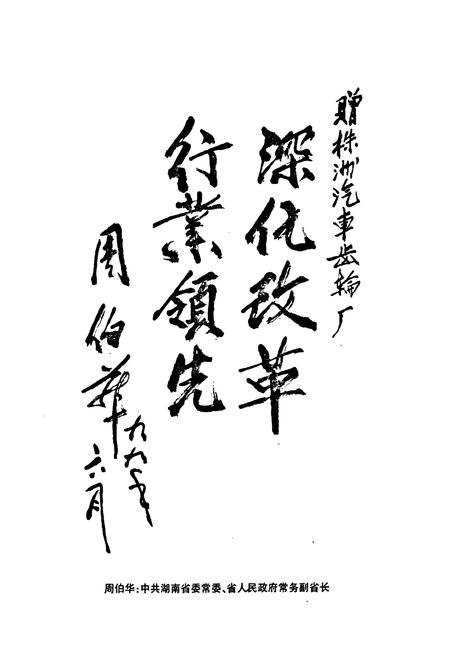 贈株洲汽車齿輪厂
深化改革
行業領先
周伯華
九九年
六月
周伯华:中共湖南省委常委、省人民政府常务副省长